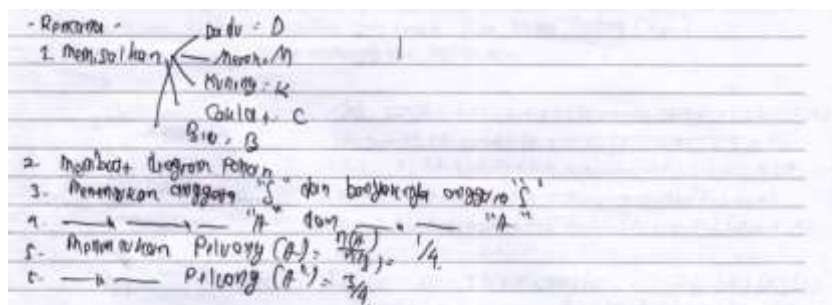 - Rencana -
1. Memisalkan
Dadu = D
Merah = M
Kuning = K
Coklat = C
Biru = B
2. Membuat diagram pohon
3. Menentukan anggota "S" dan banyaknya anggota "S"
4. —— " —— " —— "A" dan —— " —— "A"
5. Menentukan Peluang (A) = n(A)/n(S) = 1/4
6. —— " —— Peluang (A^c) = 3/4